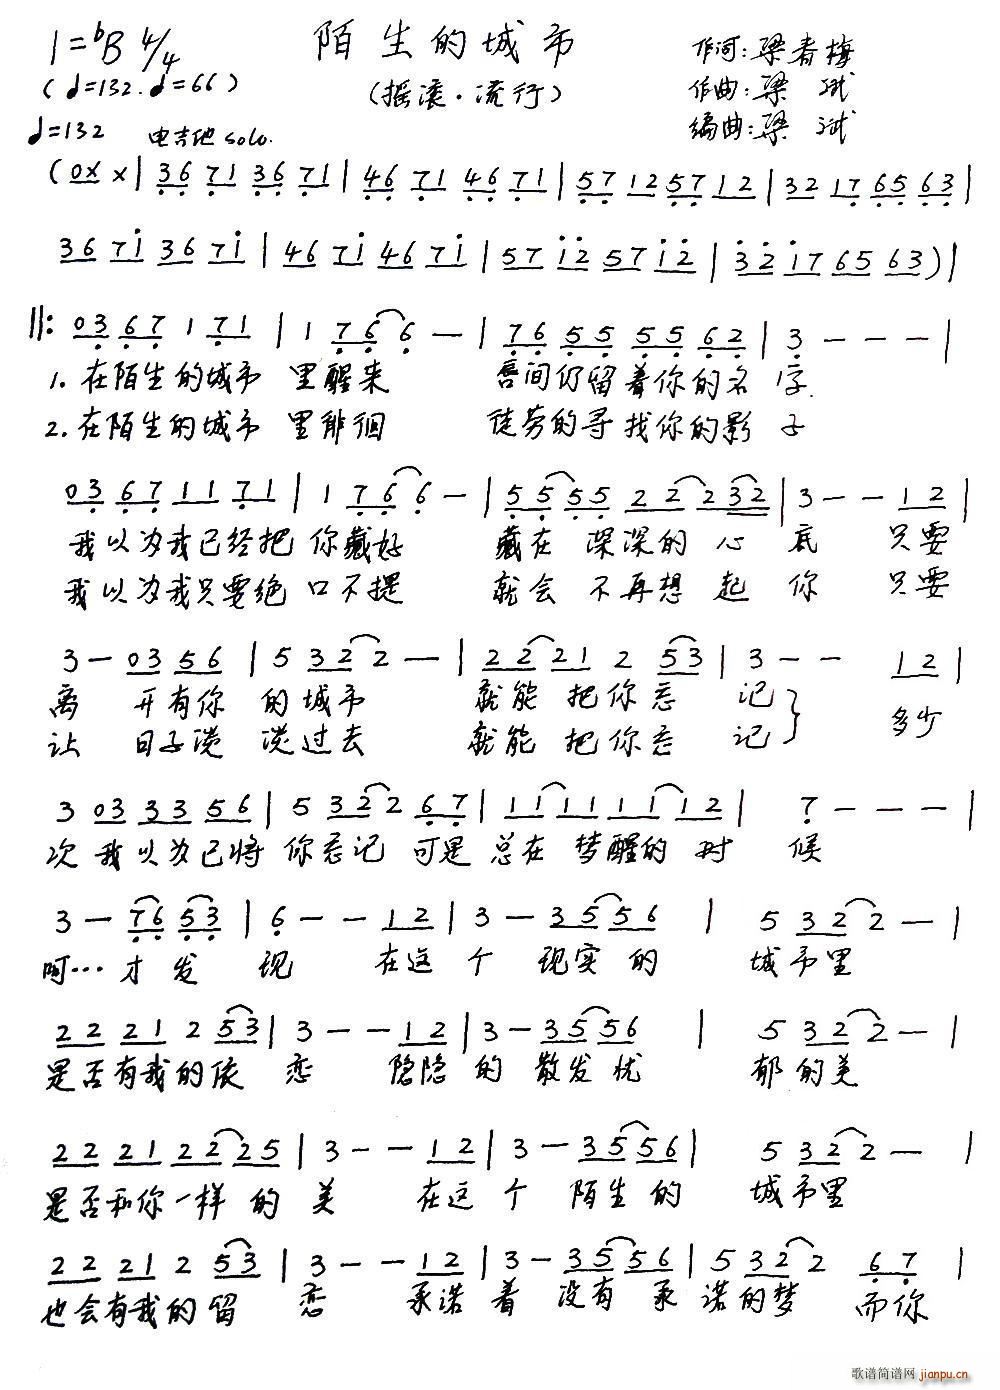 陌生的城市
1=ᵇB 4/4
(♩=132.♩=66)
(摇滚·流行)
作词:梁春梅
作曲:梁斌
编曲:梁斌
♩=132 电吉他solo.
(0x x | 36 71 36 71 | 46 71 46 71 | 57 12 57 12 | 32 17 65 63 |
36 71 36 71 | 46 71 46 71 | 57 12 57 12 | 32 17 65 63) |
‖: 03 67 1 71 | 1 76 6 — | 76 55 55 62 | 3 — — — |
1. 在陌生的城市 里醒来 唇间仍留着你的名字.
2. 在陌生的城市 里徘徊 徒劳的寻找你的影子
03 67 11 71 | 1 76 6 — | 55 55 22 232 | 3 — — 12 |
我以为我已经把你藏好 藏在深深的心底 只要
我以为我只要绝口不提 就会不再想起你 只要
3 — 03 56 | 5 32 2 — | 22 21 2 53 | 3 — — 12 |
离 开有你的城市 就能把你忘记 多少
让 日子淡淡过去 就能把你忘记
3 03 33 56 | 5 32 2 67 | 11 11 11 12 | 7 — — — |
次我以为已将你忘记 可是总在梦醒的时候
3 — 76 53 | 6 — — 12 | 3 — 35 56 | 5 32 2 — |
啊…才发现 在这个现实的 城市里
22 21 2 53 | 3 — — 12 | 3 — 35 56 | 5 32 2 — |
是否有我的依恋 隐隐的散发忧 郁的美
22 21 22 25 | 3 — — 12 | 3 — 35 56 | 5 32 2 — |
是否和你一样的美 在这个陌生的 城市里
22 21 2 53 | 3 — — 12 | 3 — 35 56 | 5 32 2 67 |
也会有我的留恋 承诺着没有承诺的梦 而你
歌谱简谱网 jianpu.cn